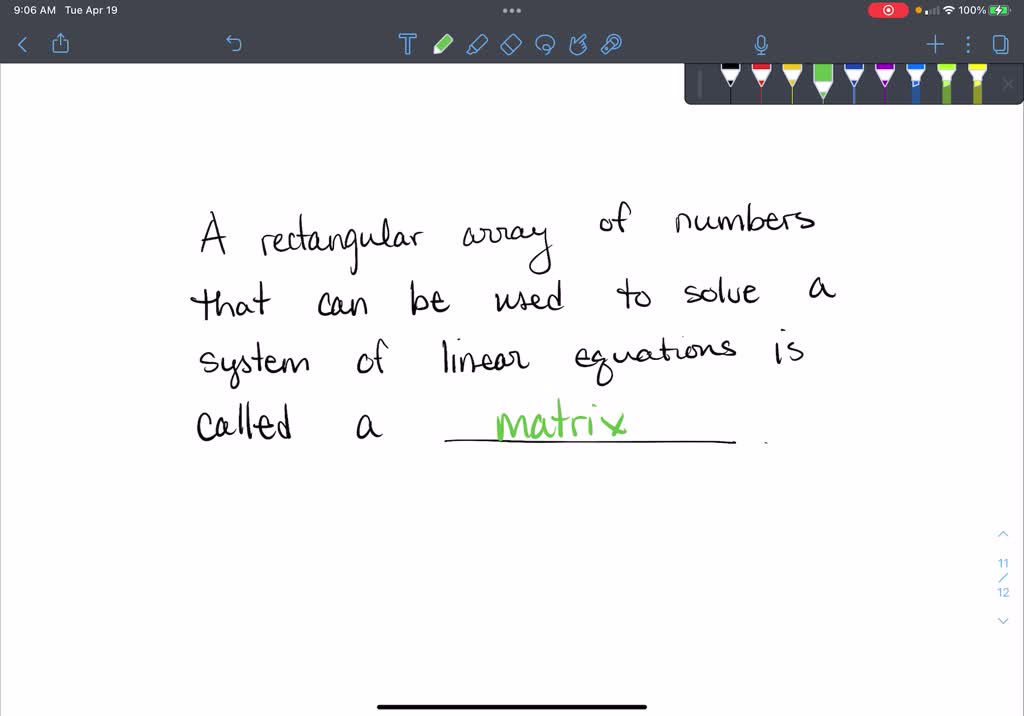 9:06 AM Tue Apr 19
100%
T
A rectangular array of numbers
that can be used to solve a
system of linear equations is
called a matrix.
11
/
12